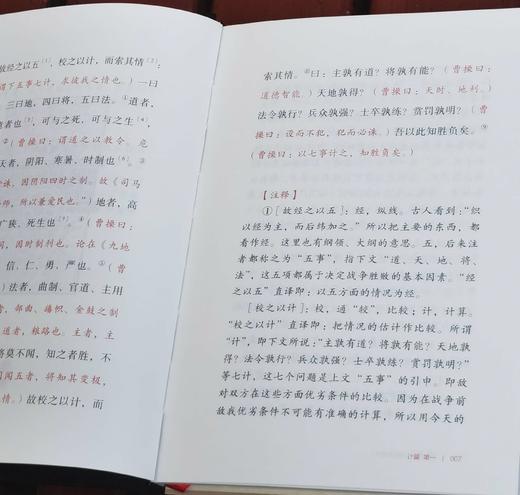 故经之以五[1],校之以计,而索其情[2]:
谓下五事七计,求彼我之情也。)一曰
三曰地,四曰将,五曰法。①道者,
意也[3],可与之死,可与之生[4],
②(曹操曰:谓道之以教令。危
天者,阴阳、寒暑、时制也[6]。
诛,因阴阳四时之制。故《司马
师,所以兼爱民也。”)地者,高
广狭、死生也[9]。④(曹操曰:
同,因时制利也。论在《九地
信、仁、勇、严也。⑤(曹
)法者,曲制、官道、主用
部曲、旛帜、金鼓之制
道者,粮路也。主者,主
将莫不闻,知之者胜,不
同闻五者,将知其变极,
情。)故校之以计,而
索其情。⑧曰:主孰有道?将孰有能?(曹操曰:
道德智能。)天地孰得?(曹操曰:天时、地利。)
法令孰行?兵众孰强?士卒孰练?赏罚孰明?(曹
操曰:设而不犯,犯而必诛。)吾以此知胜负矣。⑨
(曹操曰:以七事计之,知胜负矣。)
【注释】
①[故经之以五]:经,纵线。古人看到:“织
以经为主,而后纬加之。”所以把主要的东西,都
看作经。这里也有纲领、大纲的意思。五,后来注
者都称之为“五事”,指下文“道、天、地、将、
法”,这五项都属于决定战争胜败的基本因素。“经
之以五”直译即:以五方面的情况为经。
[校之以计]:校,通“较”,比较;计,计算。
“校之以计”直译即:把情况的估计作比较。所谓
“计”,即下文所说:“主孰有道?将孰有能?天地孰
得?法令孰行?兵众孰强?士卒孰练?赏罚孰明?”
等七计,这七个问题是上文“五事”的引申。即敌
对双方在这些方面优劣条件的比较。因为在战争前
敌我优劣条件不可能有准确的计算,所以用今天的
计篇 第一 | 007